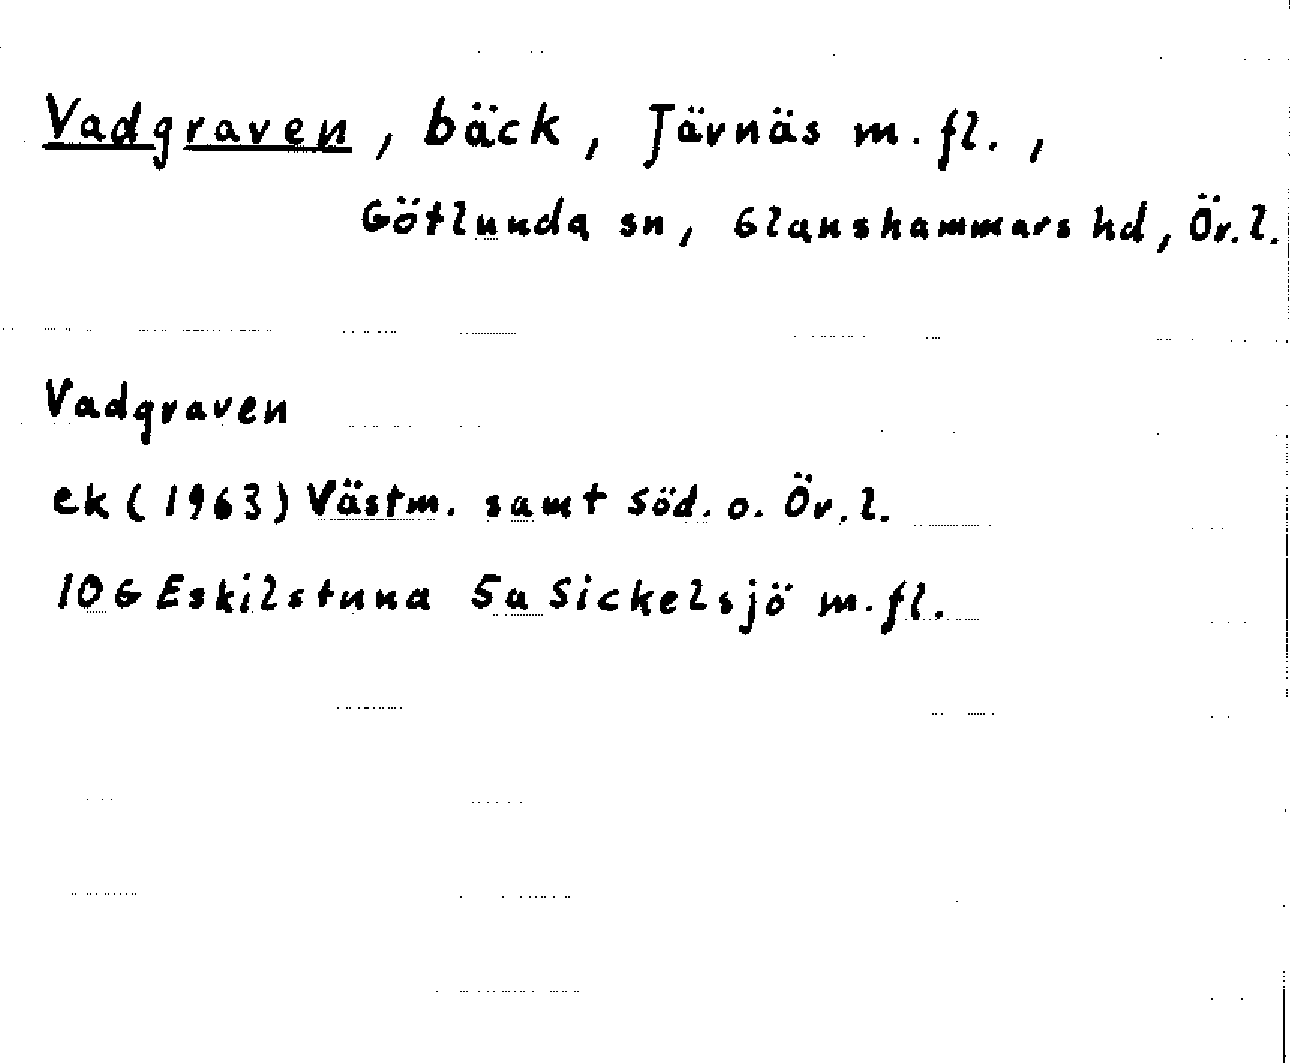 Vadgraven, bäck, Järnäs m.fl.,
Götlunda sn, Glanshammars hd, Ör.l.
Vadgraven
ek (1963) Västm. samt Söd. o. Ör.l.
10G Eskilstuna 5a Sickelsjö m.fl.